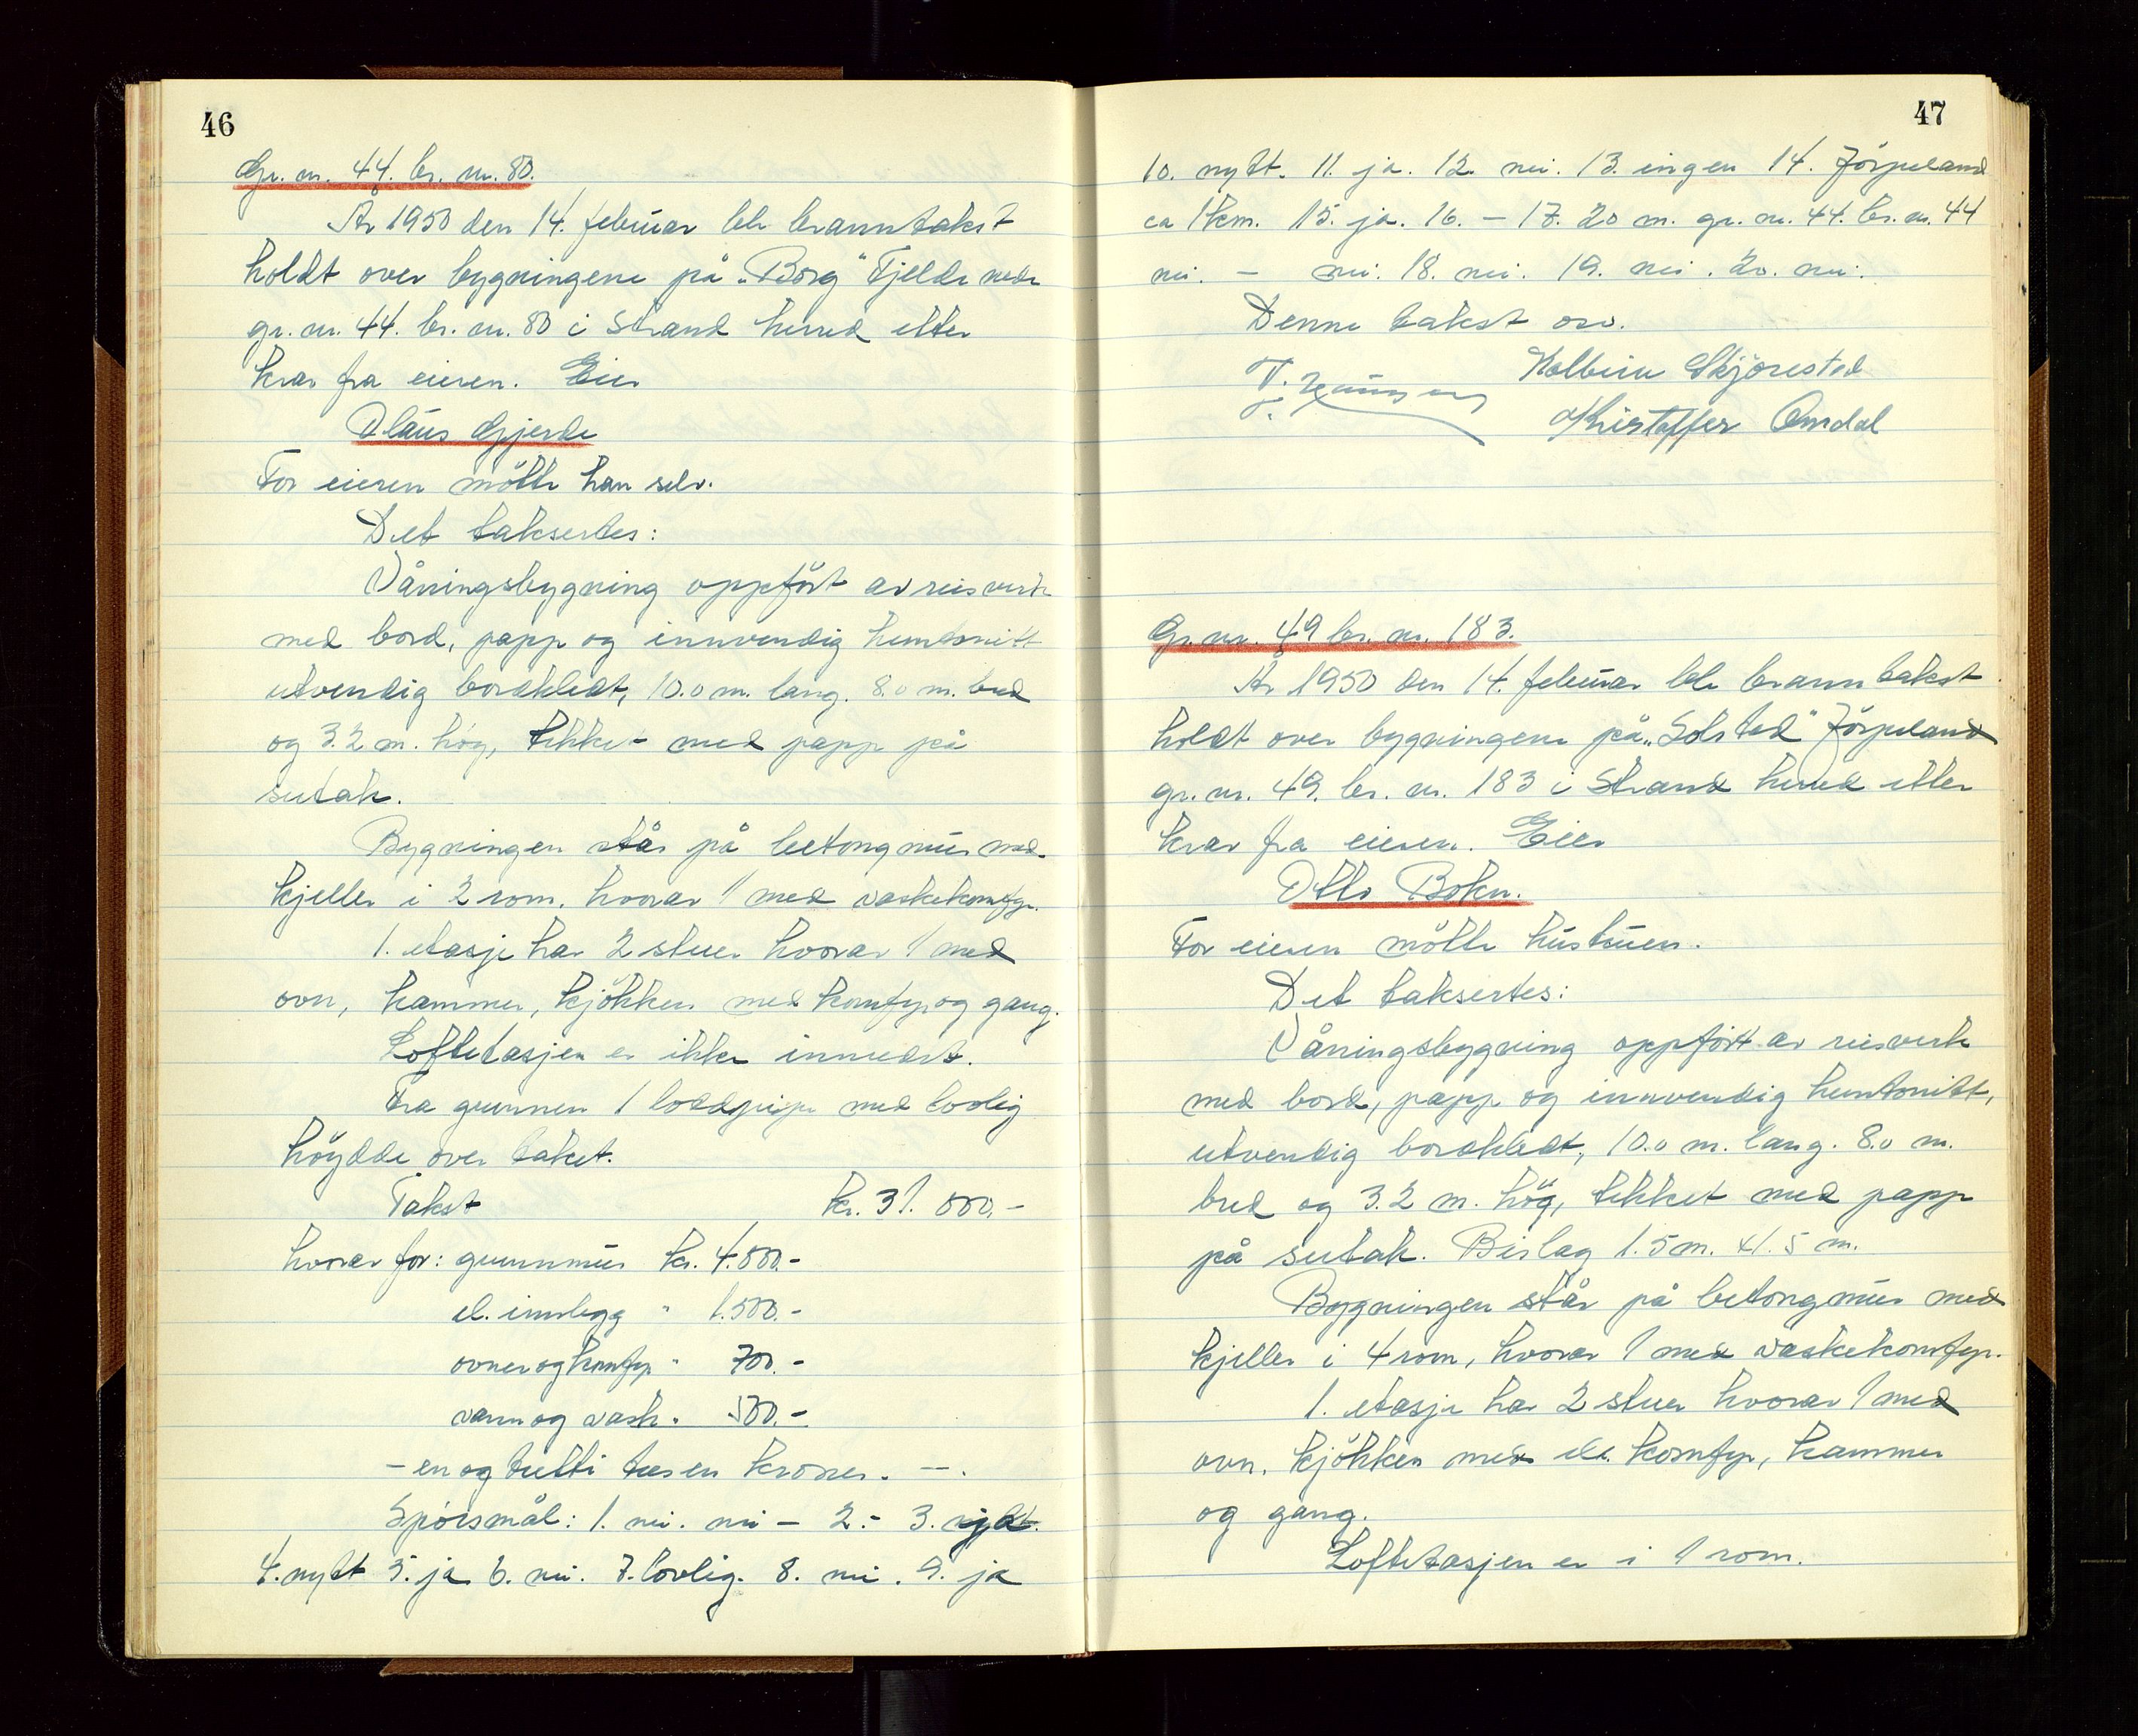 46
Gr. nr. 44. br. nr. 80.
År 1950 den 14. februar ble branntakst
holdt over bygningene på "Borg" Fjelde nedr
gr. nr. 44. br. nr. 80 i Strand herred etter
krav fra eieren. Eier
Olaus Gjerde
For eieren møtte han selv.
Det taksertes:
Våningsbygning oppført av reisverk
med bord, papp og innvendig huntonitt
utvendig bordkledt, 10.0 m. lang. 8.0 m. bred
og 3.2 m. høg, tekket med papp på
sutak.
Bygningen står på betongmur med
kjeller i 2 rom, hvorav 1 med vaskekomfyr.
1. etasje har 2 stuer hvorav 1 med
ovn, kammer, kjøkken med komfyr og gang.
Loftetasjen er ikke innredet.
Fra grunnen 1 loddpipe med lovlig
høydde over taket.
Takst kr. 31.000.-
hvorav for: grunnmur kr. 4.000.-
el. innlegg " 1.500.-
ovner og komfyr " 700.-
vann og vask " 500.-
- en og tretti tusen kroner. -.
Spørsmål: 1. nei. nei - 2.- 3. nytt.
4. nytt 5. ja 6. nei. 7. lovlig. 8. nei. 9. ja
47
10. nytt. 11. ja. 12. nei. 13. ingen 14. Jørpeland
ca 1 km. 15. ja. 16. - 17. 20 m. gr. nr. 44. br. nr. 44
nei. - nei. 18. nei. 19. nei. 20. nei.
Denne takst osv.
Kolbein Skjørestad
Kristoffer Omdal
Gr. nr. 49 br. nr. 183.
År 1950 den 14. februar ble branntakst
holdt over bygningene på "Solstad" Jørpeland
gr. nr. 49. br. nr. 183 i Strand herred etter
krav fra eieren. Eier
Otto Bokn.
For eieren møtte hustruen.
Det taksertes:
Våningsbygning oppført av reisverk
med bord, papp og innvendig huntonitt,
utvendig bordkledt, 10.0 m. lang. 8.0 m.
bred og 3.2 m. høg, tekket med papp
på sutak. Bislag 1.5 m. x 1.5 m.
Bygningen står på betongmur med
kjeller i 4 rom, hvorav 1 med vaskekomfyr.
1. etasje har 2 stuer hvorav 1 med
ovn. kjøkken med el. komfyr, kammer
og gang.
Loftetasjen er i 1 rom.